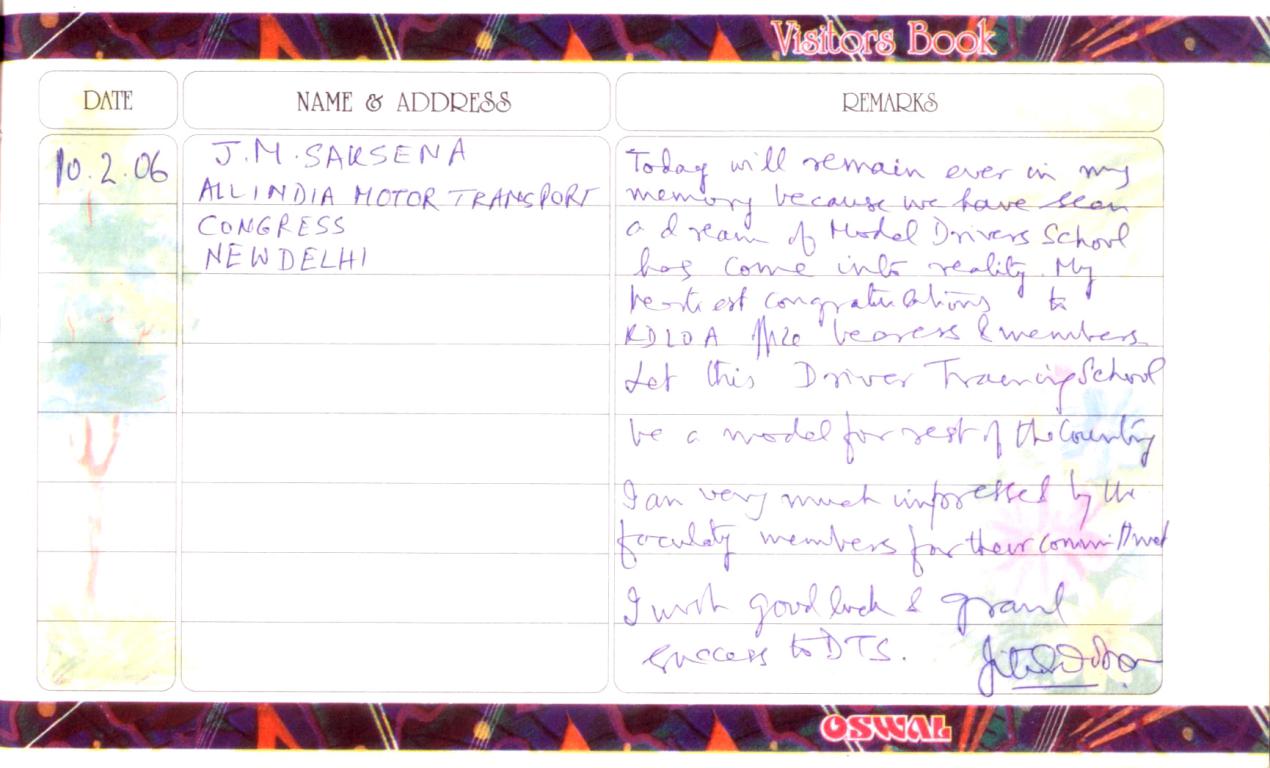 Visitors Book
DATE
NAME & ADDRESS
REMARKS
10.2.06
J.M. SAKSENA
ALL INDIA MOTOR TRANSPORT
CONGRESS
NEW DELHI
Today will remain ever in my
memory because we have seen
a dream of Model Drivers School
has come into reality. My
congratulations to
bearers & members
Let this Driver Training School
be a model for rest of the Country
I am very much impressed by the
faculty members for their commitment
I wish good luck & grand
success to DTS.
OSWAL